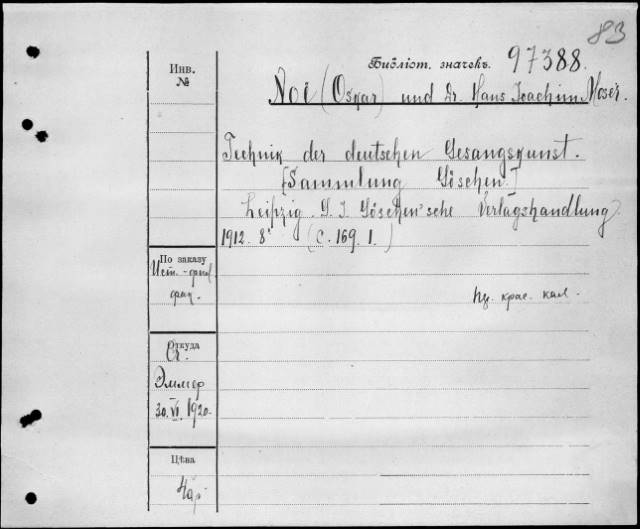 83
Библіот. значекъ. 97388.
Инв.
№
Noë (Oskar) und Dr. Hans Joachim Moser.
Technik der deutschen Gesangskunst.
[Sammlung Göschen.]
Leipzig. G. J. Göschen'sche Verlagshandlung
1912. 8° (C. 169. 1.)
По заказу
Ист.-фил
фак.
Нѣ. крас. кал.
Откуда
Эммер
30.VI.1920.
Цѣна